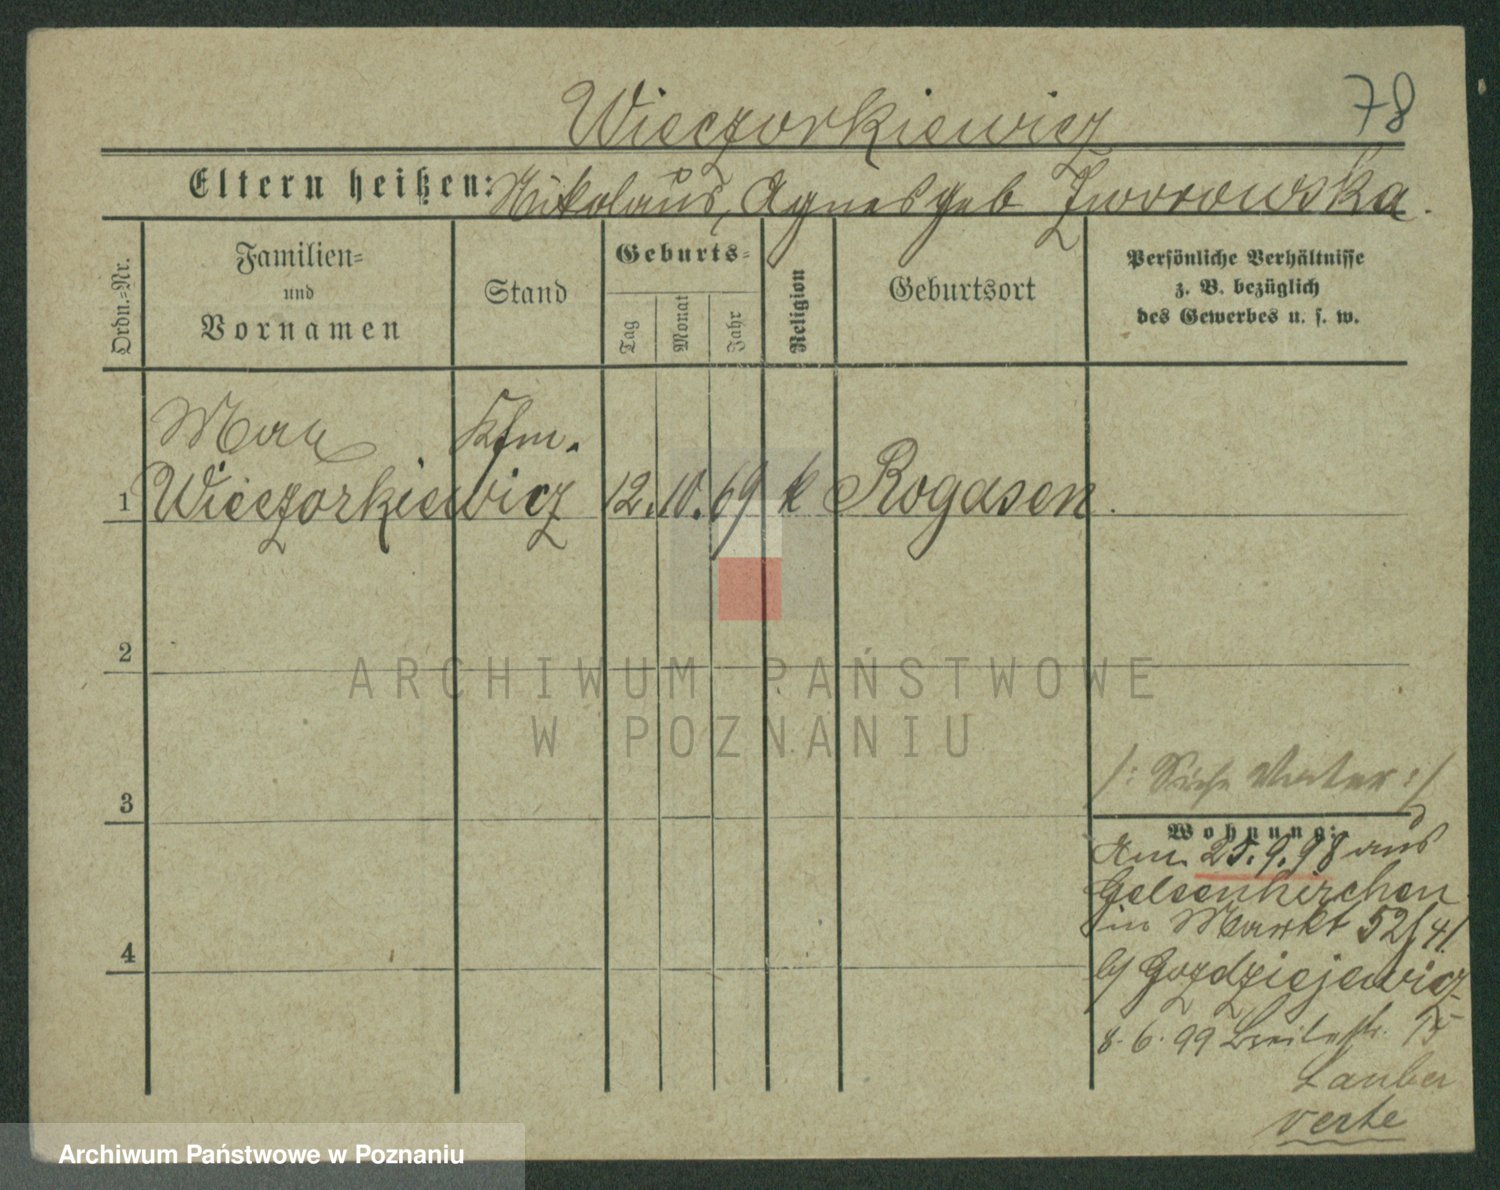 78
Wieczorkiewicz
Eltern heißen: Nikolaus, Agnes geb Zworowska.
Ordn.-Nr.
Familien- und Vornamen
Stand
Geburts-
Tag
Monat
Jahr
Religion
Geburtsort
Persönliche Verhältnisse
z. B. bezüglich
des Gewerbes u. s. w.
Max Kfm.
1 Wieczorkiewicz 12. 10. 69 k Rogasen.
2
3
/: Siehe Vater :/
Wohnung:
Am 25.9.98 aus
Gelsenkirchen
in Markt 52/41
b/ Gozdziejewicz
8.6.99 Breitestr. 15
Lauber
verte
4
ARCHIWUM PAŃSTWOWE
W POZNANIU
Archiwum Państwowe w Poznaniu